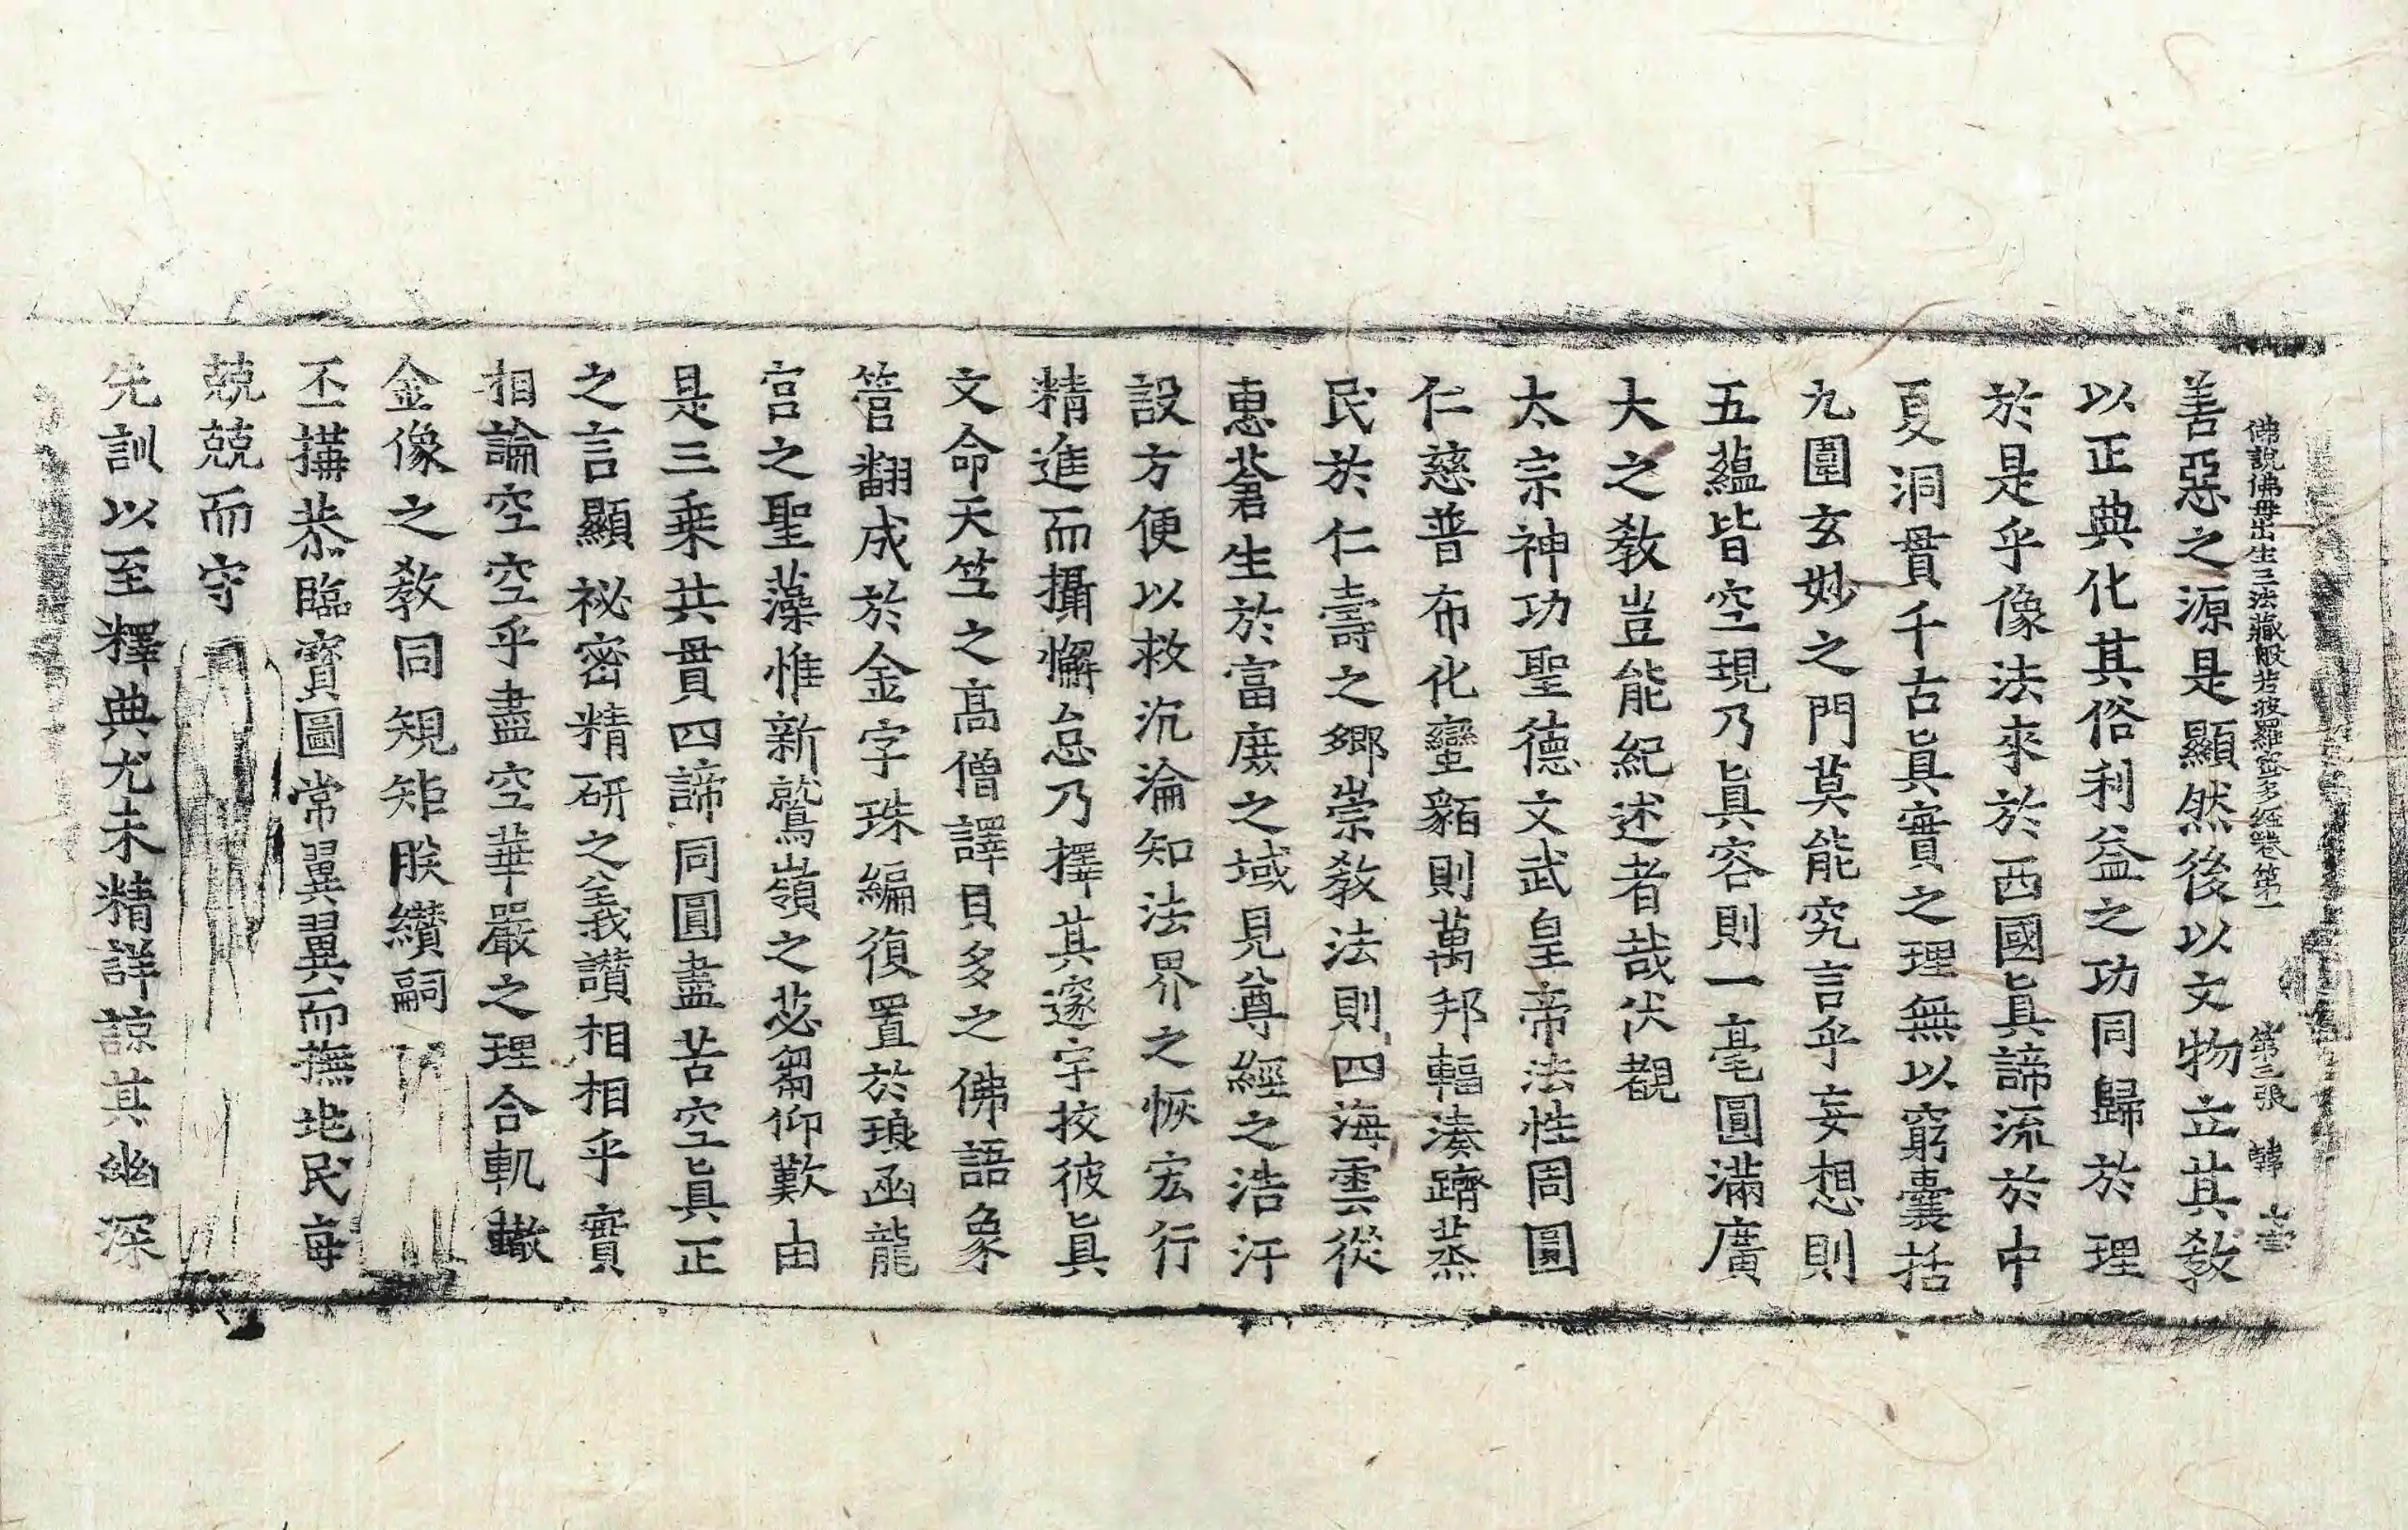 佛說佛母出生三法藏般若波羅蜜多經卷第一 第三張 韓
善惡之源是顯然後以文物立其教
以正典化其俗利益之功同歸於理
於是乎像法來於西國眞諦流於中
夏洞貫千古眞實之理無以窮囊括
九圍玄妙之門莫能究言乎妄想則
五蘊皆空現乃眞容則一毫圓滿廣
大之教豈能紀述者哉伏覩
太宗神功聖德文武皇帝法性周圓
仁慈普布化蠻貊則萬邦輻湊躋蒸
民於仁壽之鄉崇教法則四海雲從
惠蒼生於富庶之域見尊經之浩汗
設方便以救沉淪知法界之恢宏行
精進而攝懈怠乃擇其邃宇挍彼眞
文命天竺之高僧譯貝多之佛語象
管翻成於金字珠編復置於琅函龍
宮之聖藻惟新鷲嶺之苾蒭仰歎由
是三乘共貫四諦同圓盡苦空眞正
之言顯祕密精研之義讚相相乎實
相論空空乎盡空華嚴之理合軌轍
金像之教同規矩朕纘嗣
丕搆恭臨寶圖常翼翼而撫地民每
兢兢而守
先訓以至釋典尤未精詳諒其幽深